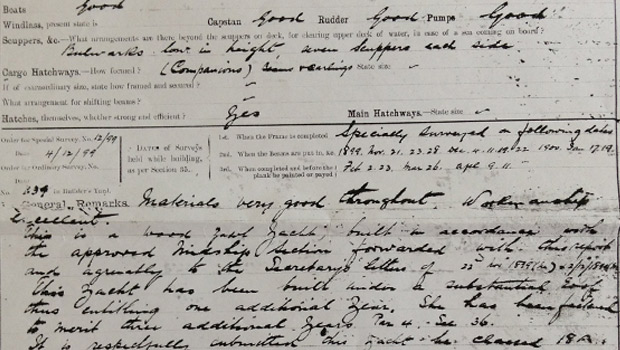 Boats Good
Windlass, present state is Capstan Good Rudder Good Pumps Good
Scuppers, &c.—What arrangements are there beyond the scuppers on deck, for clearing upper deck of water, in case of a sea coming on board?
Bulwarks low in height seven scuppers each side
Cargo Hatchways.—How formed? (Companions) beams & carlings State size
If of extraordinary size, state how framed and secured?
What arrangement for shifting beams?
Hatches, themselves, whether strong and efficient? Yes Main Hatchways.—State size
Order for Special Survey, No. 12/99
Date 4/12/99
Order for Ordinary Survey, No.
Date
No. 434 in Builder's Yard.
DATES of Surveys held while building, as per Section 55.
1st. When the Frame is completed
2nd. When the Beams are put in, &c.
3rd. When completed and before the plank be painted or payed
Specially Surveyed on following dates
1899. Nov. 21. 23. 28 Dec. 4. 11. 19. 22 1900. Jan 17. 19.
Feb 2. 23. Mar 26. Apl 9. 11
General Remarks. Materials very good throughout. Workmanship
Excellent.
This is a wood yawl Yacht, built in accordance with
the approved Midship Section forwarded with this report
and agreeably to the Secretary's letters of
This Yacht has been built under a substantial Roof
thus entitling one additional Year. She has been
to merit three additional Years Par 4. Sec 36.
It is respectfully submitted this Yacht be classed 18A.